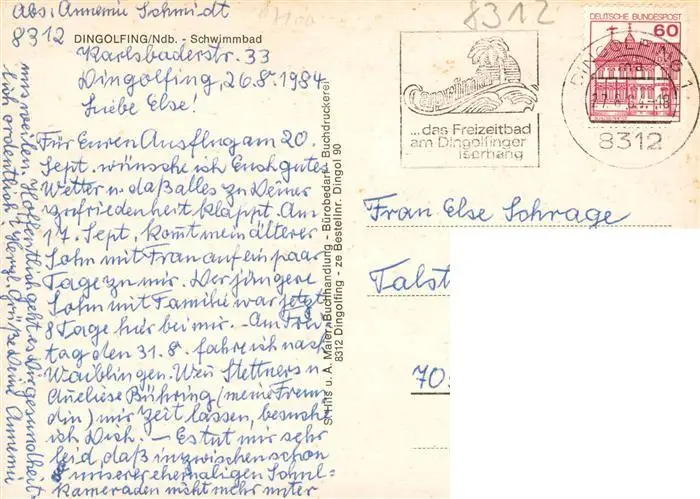 Abs: Annemie Schmidt
8312
DINGOLFING/Ndb. - Schwimmbad
Karlsbaderstr. 33
Dingolfing, 26.8.1984
Liebe Else!
Für Euren Ausflug am 20.
Sept. wünsche ich Euch gutes
Wetter u. daß alles zu Deiner
Zufriedenheit klappt. Am
17. Sept. kom̄t mein älterer
Sohn mit Frau auf ein paar
Tage zu mir. Der jüngere
Sohn mit Familie war jetzt
8 Tage hier bei mir. – Am Frei-
tag den 31.8. fahre ich nach
Waiblingen. Wen̄ Stettners u.
Aneliese Bühring (meine Freun
din) mir Zeit lassen, besuche
ich Dich. – Es tut mir sehr
leid, daß inzwischen schon
unserer ehemaligen Schul-
kameraden nicht mehr unter
uns weilen. Hoffentlich geht es Dir gesundheit-
lich ordentlich! Herzl. Grüße Deine Annemie
S. Hits u. A. Maier, Buchhandlung - Bürobedarf - Buchdruckerei
8312 Dingolfing - ze Bestellnr. Dingol 90
8312
...das Freizeitbad
am Dingolfinger
Iserhang
DINGOLFING 1
27.8.84-18
8312
DEUTSCHE BUNDESPOST
60
Frau Else Schrage
Talst
70